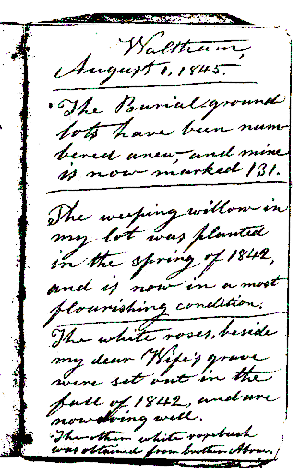 Waltham,
August 1, 1845.
The Burial ground
lots have been num-
bered anew, and mine
is now marked 131.
The weeping willow in
my lot was planted
in the spring of 1842,
and is now in a most
flourishing condition.
The white roses, beside
my dear Wife's grave
were set out in the
fall of 1842, and are
now doing well.
The other white rosebush
was obtained from brother Abram,